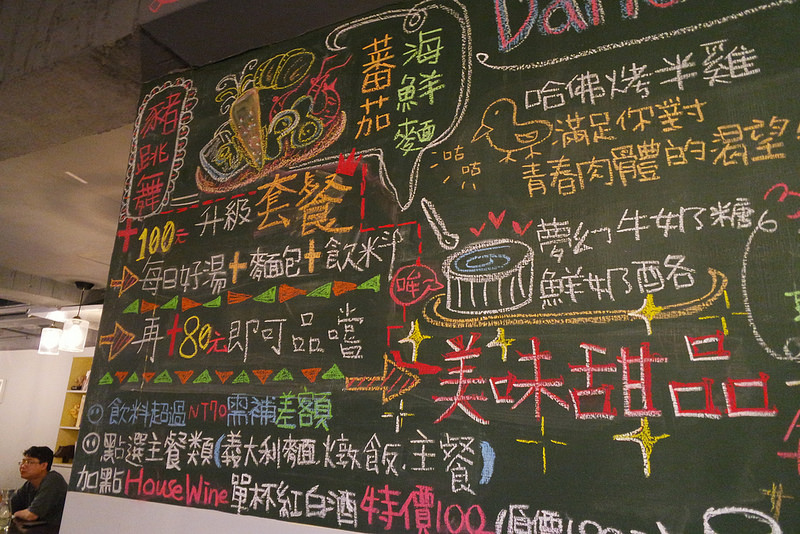 豬跳舞
蕃茄
海鮮麵
哈佛烤半雞
滿足你對
青春肉體的渴望
咕咕
+100元 升級套餐
每日好湯+麵包+飲料
再+80元即可品嚐
夢幻牛奶糖
鮮奶酪
美味甜品
飲料超過NT70需補差額
點選主餐類(義大利麵.燉飯.主餐)
加點House Wine 單杯紅白酒 特價100